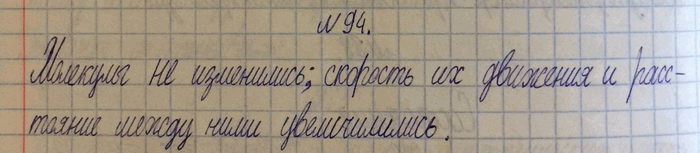 №94.
Молекулы не изменились; скорость их движения и расс-
тояние между ними увеличилились.